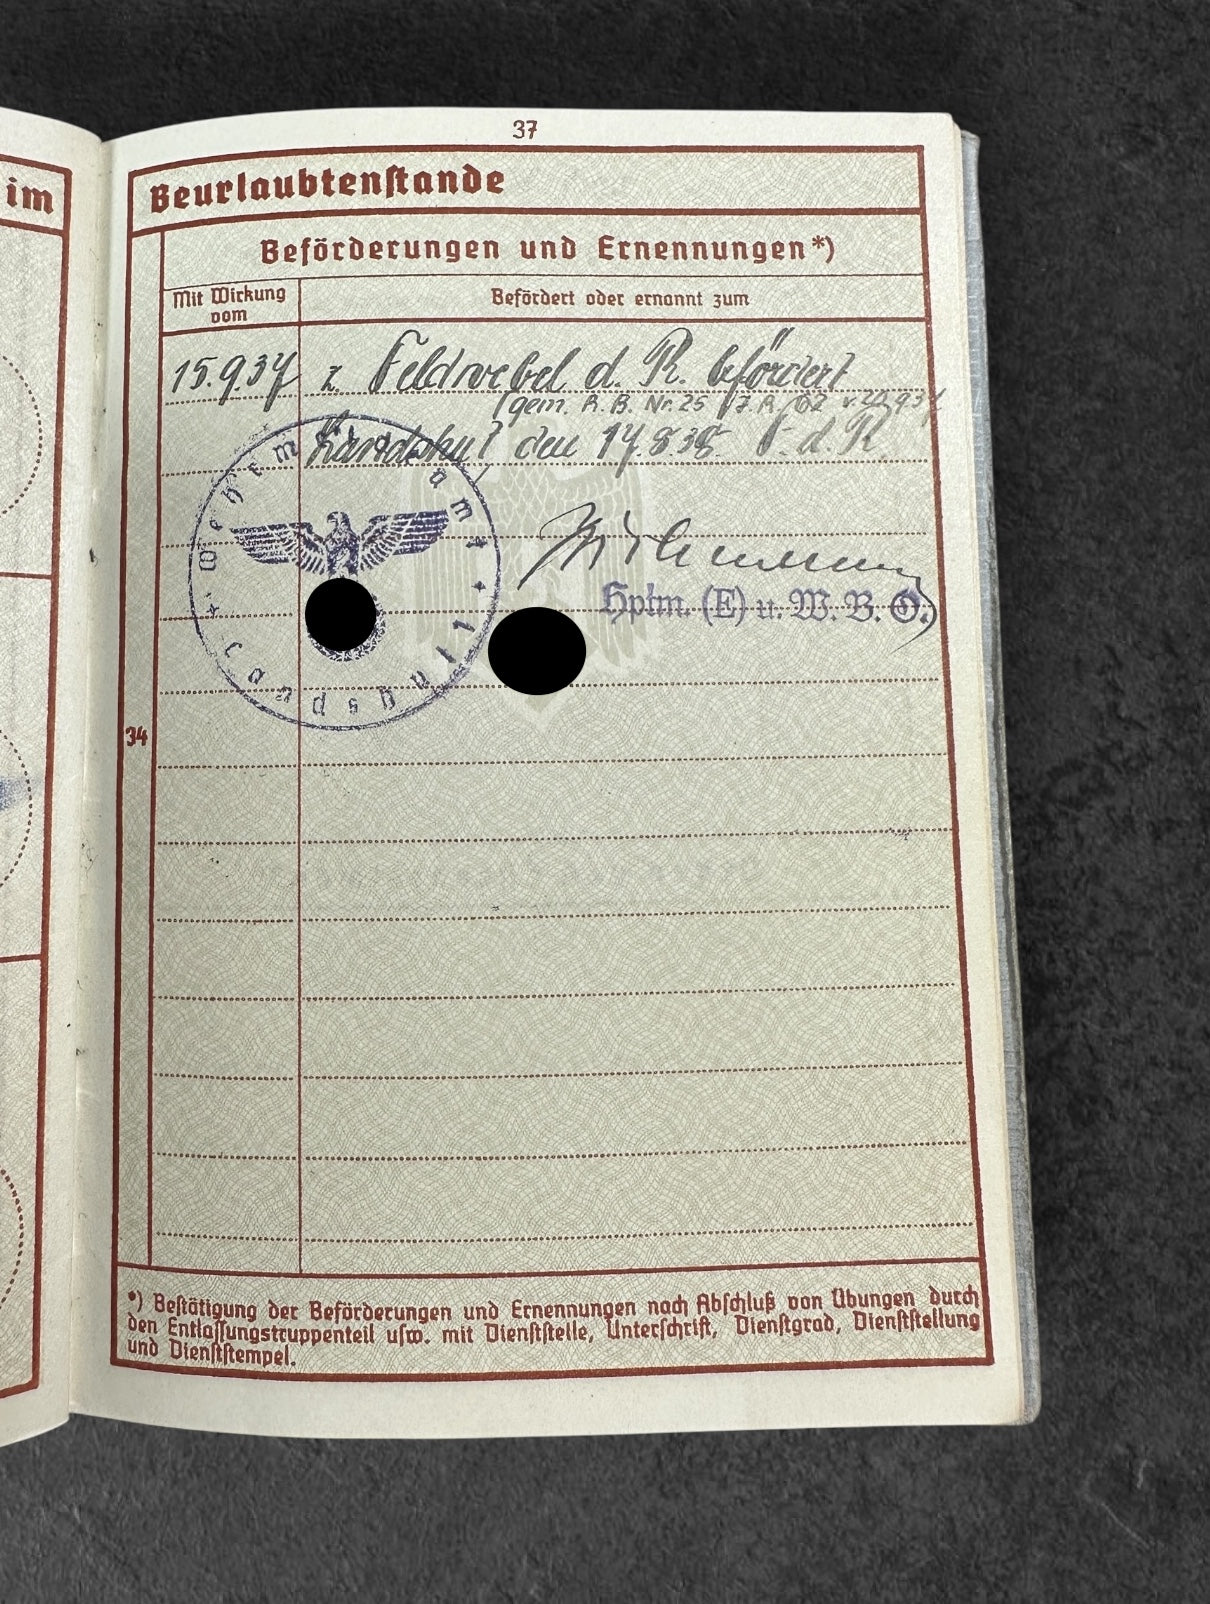 37
im
Beurlaubtenstande
Beförderungen und Ernennungen*)
Mit Wirkung
vom
Befördert oder ernannt zum
15.9.37 z. Feldwebel d. R. befördert
(gem. R. B. Nr. 25 v. 20.9.37
Landshut den 17.8.38. F. d. R.
Wehrmeldeamt
Landshut
Hptm. (E) u. W. B. O.)
34
*) Bestätigung der Beförderungen und Ernennungen nach Abschluß von Übungen durch
den Entlassungstruppenteil usw. mit Dienststelle, Unterschrift, Dienstgrad, Dienststellung
und Dienststempel.